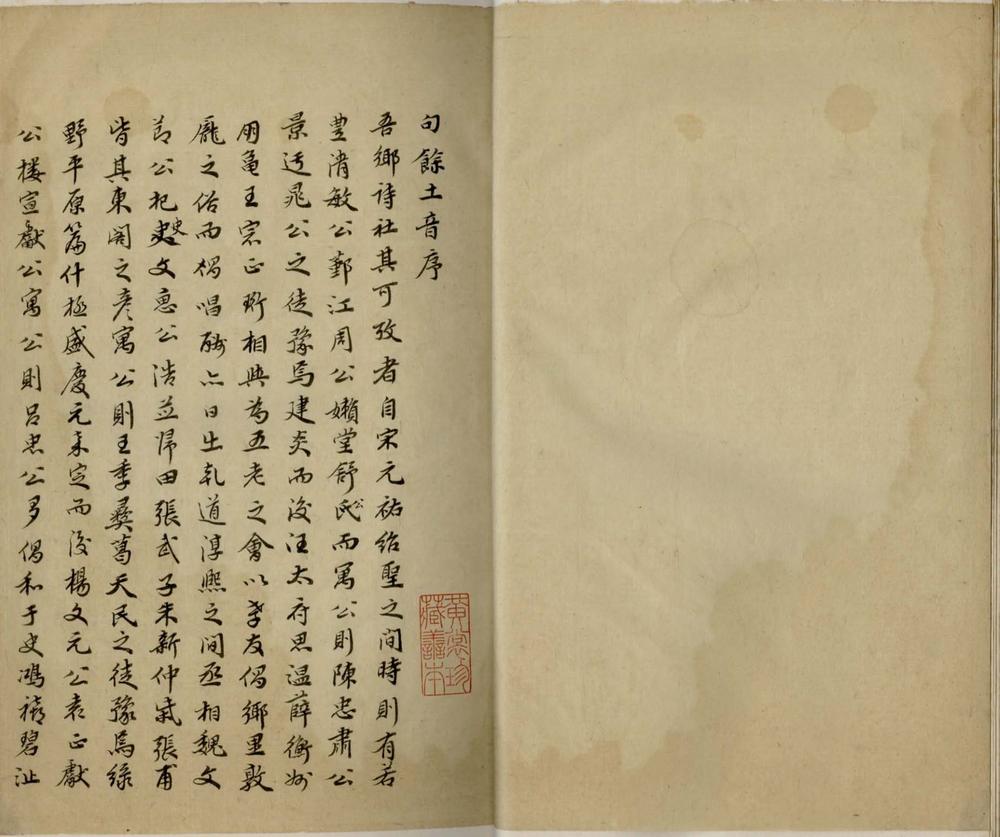 句餘土音序
吾鄉詩社其可攷者自宋元祐紹聖之間時則有若
豐清敏公鄞江周公嬾堂舒氏公而寓公則陳忠肅公
景迂晁公之徒豫焉建炎而後汪太府思溫薛衡州
朋龜王宗正珩相與為五老之會以孝友倡鄉里敦
龐之俗而楊唱酬亦日出乾道淳熙之間丞相魏文
節公杞史文惠公浩並歸田張武子朱新仲柴張甫
皆其東閣之彥寓公則王季彝葛天民之徒豫焉綠
野平原篇什極盛慶元嘉定而後楊文元公袁正獻
公樓宣獻公寓公則呂忠公多倡和于史鴻禧碧沚
黃裳珍藏善本